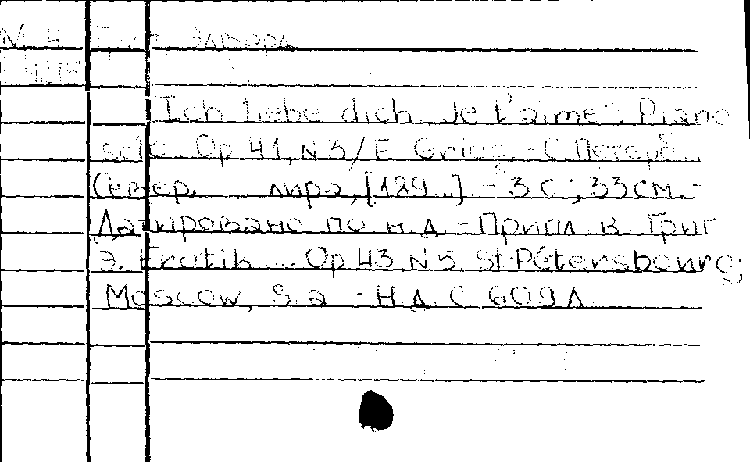 М. Н. Григ Эдвард
Ich liebe dich. Je t'aime. Piano
solo. Op 41, N 3 / E. Grieg. - С. Петерб.
Север. лира, [189..] - 3 с; 33 см. -
Датировано по н.д. - Припл. к: Григ
Э. Erotik... Op 43 N 5. St-Pétersbourg;
Moscow, S.a. - Н.д. С 609 Л